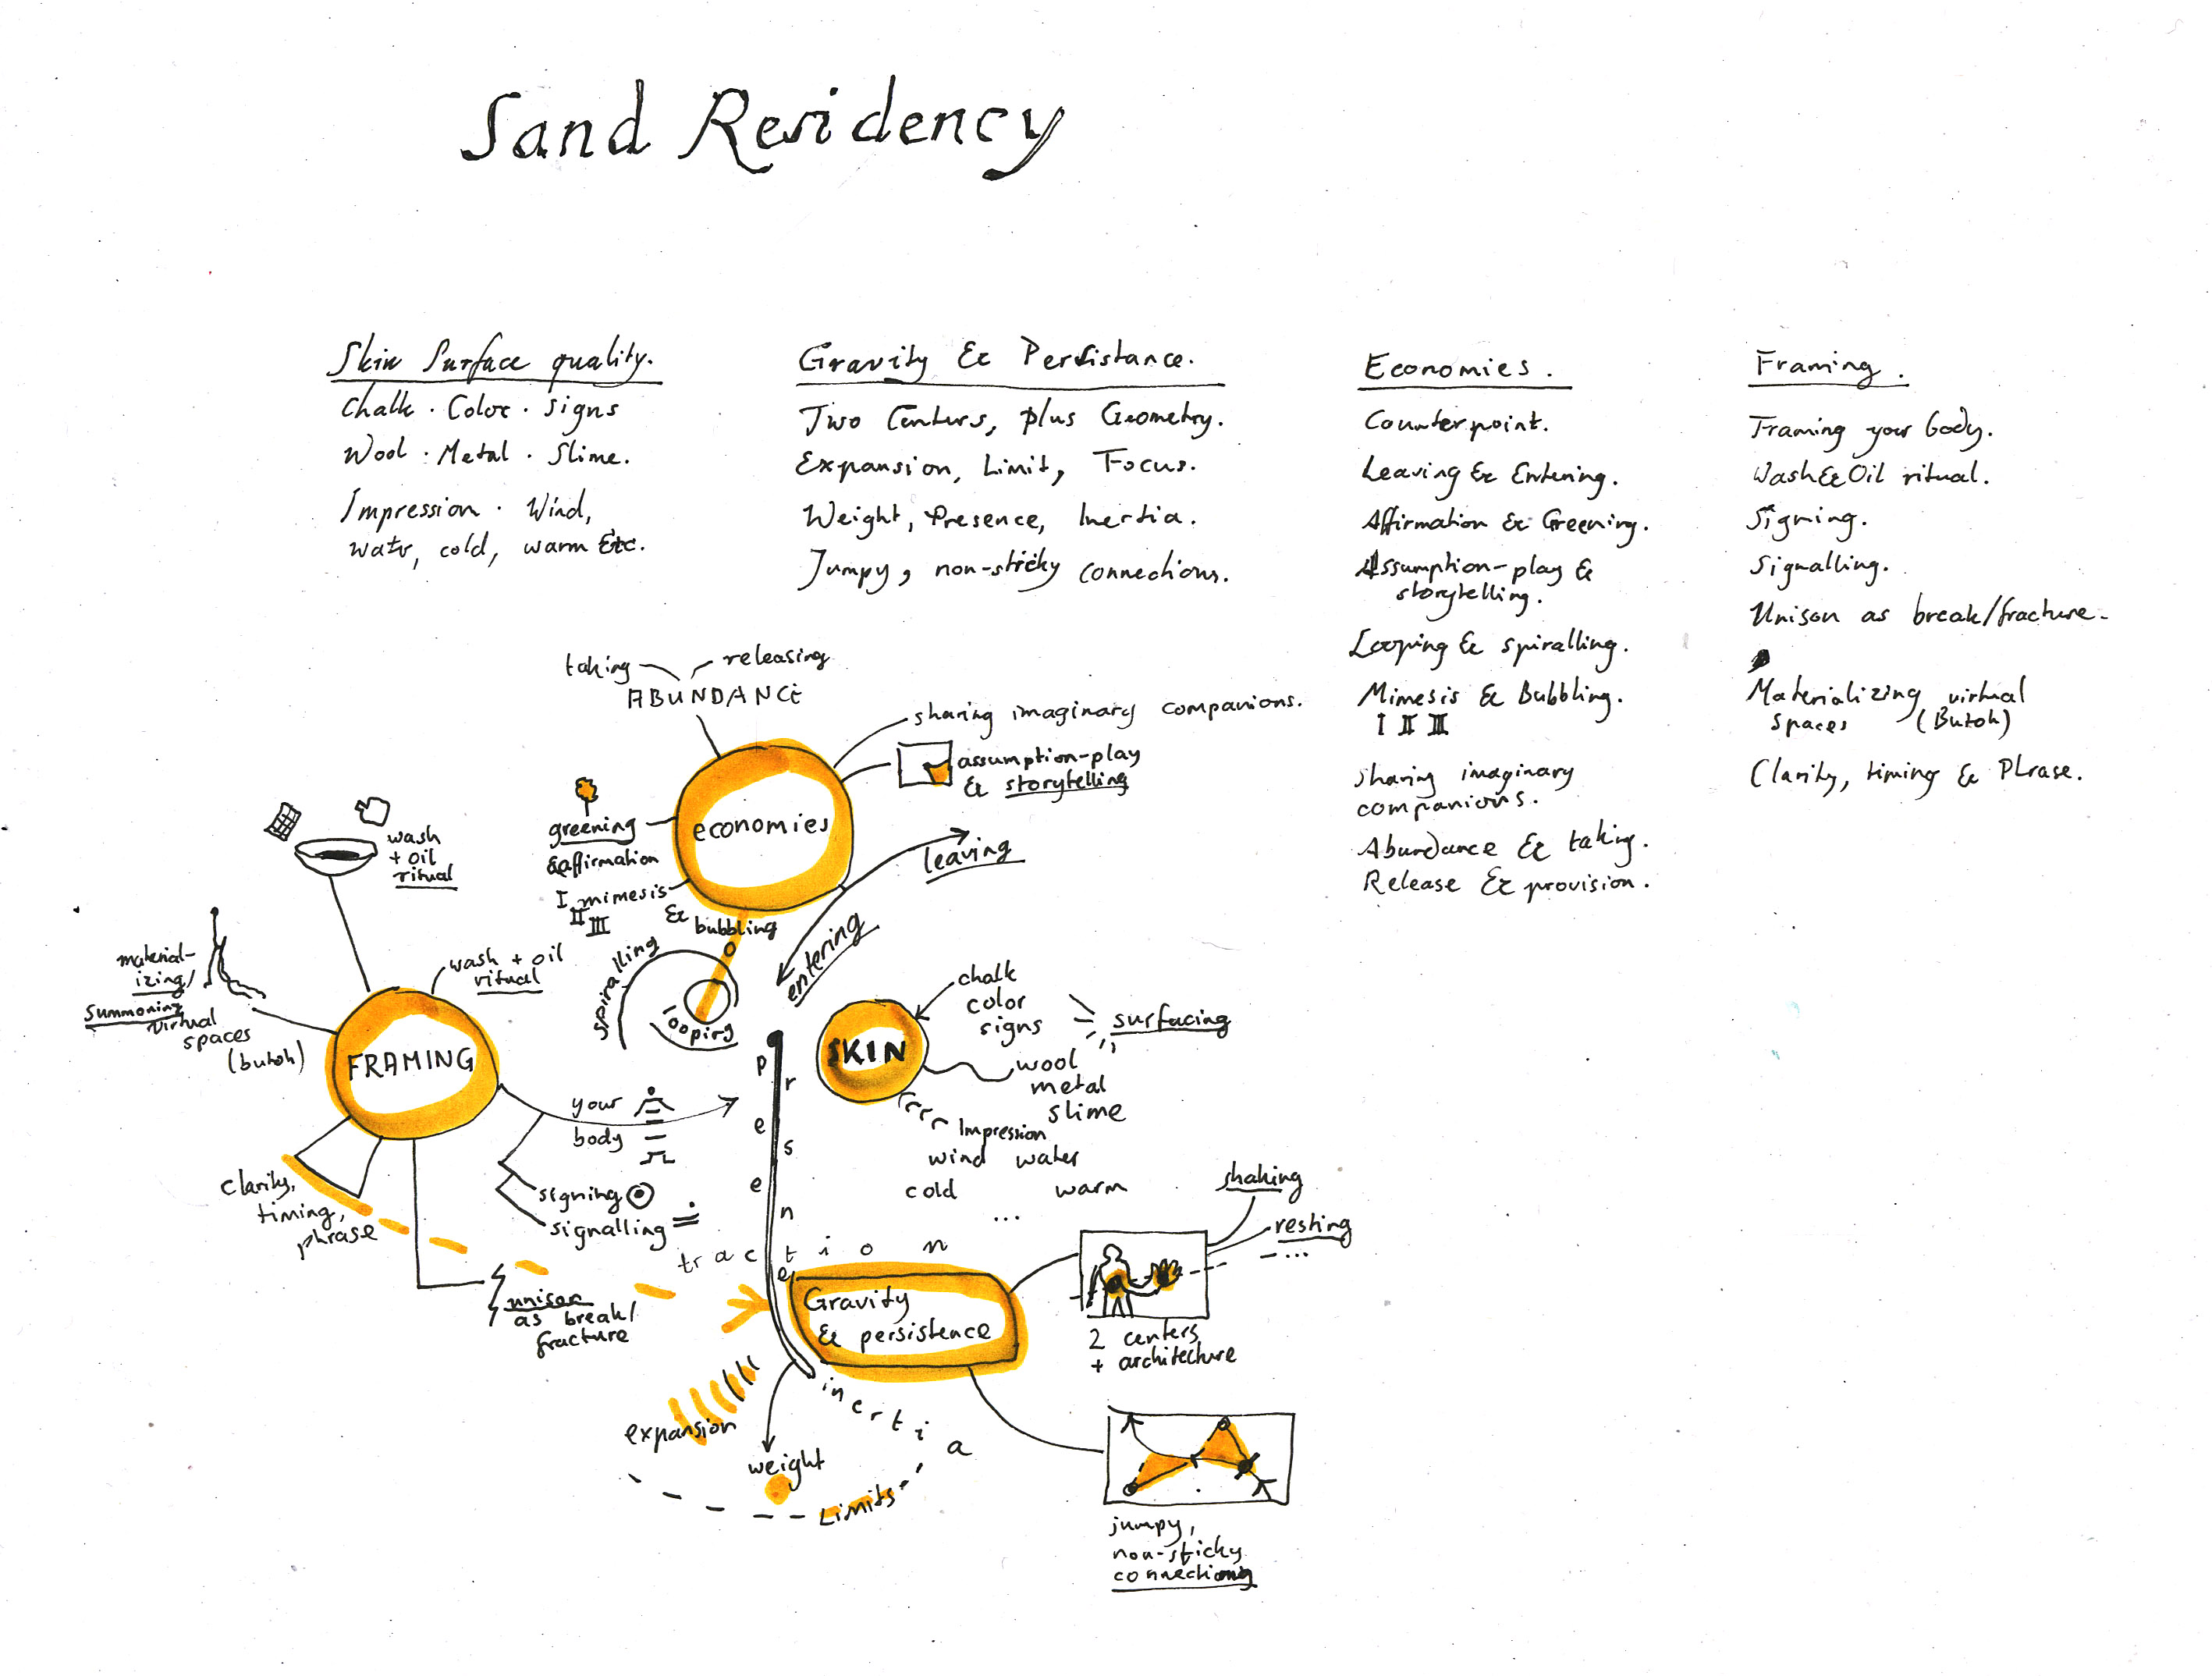 Sand Residency
Skin Surface quality.
Chalk . Color . signs
Wool . Metal . Slime.
Impression . Wind,
watr, cold, warm Etc.
Gravity & Persistance.
Two Centers, plus Geometry.
Expansion, Limit, Focus.
Weight, Presence, Inertia.
Jumpy, non-sticky connections.
Economies.
Counterpoint.
Leaving & Entering.
Affirmation & Greening.
Assumption-play &
storytelling.
Looping & spiralling.
Mimesis & Bubbling.
I II III
sharing imaginary
companions.
Abundance & taking.
Release & provision.
Framing.
Framing your body.
Wash & Oil ritual.
Signing.
Signalling.
Unison as break/fracture.
Materializing virtual
spaces (Butoh)
Clarity, timing & Phrase.
taking
releasing
ABUNDANCE
sharing imaginary companions.
assumption-play
& storytelling
economies
greening
& affirmation
I mimesis
II III
& bubbling
leaving
entering
spiralling
looping
wash
+ oil
ritual
material-
izing/
summoning
virtual
spaces
(butoh)
wash + oil
ritual
FRAMING
your
body
signing
signalling
clarity,
timing,
phrase
unison
as break/
fracture
presence
SKIN
chalk
color
signs
surfacing
wool
metal
slime
Impression
wind water
cold warm
...
traction
Gravity
& persistence
shaking
resting
...
2 centers
+ architecture
inertia
expansion
weight
Limits
jumpy,
non-sticky
connections